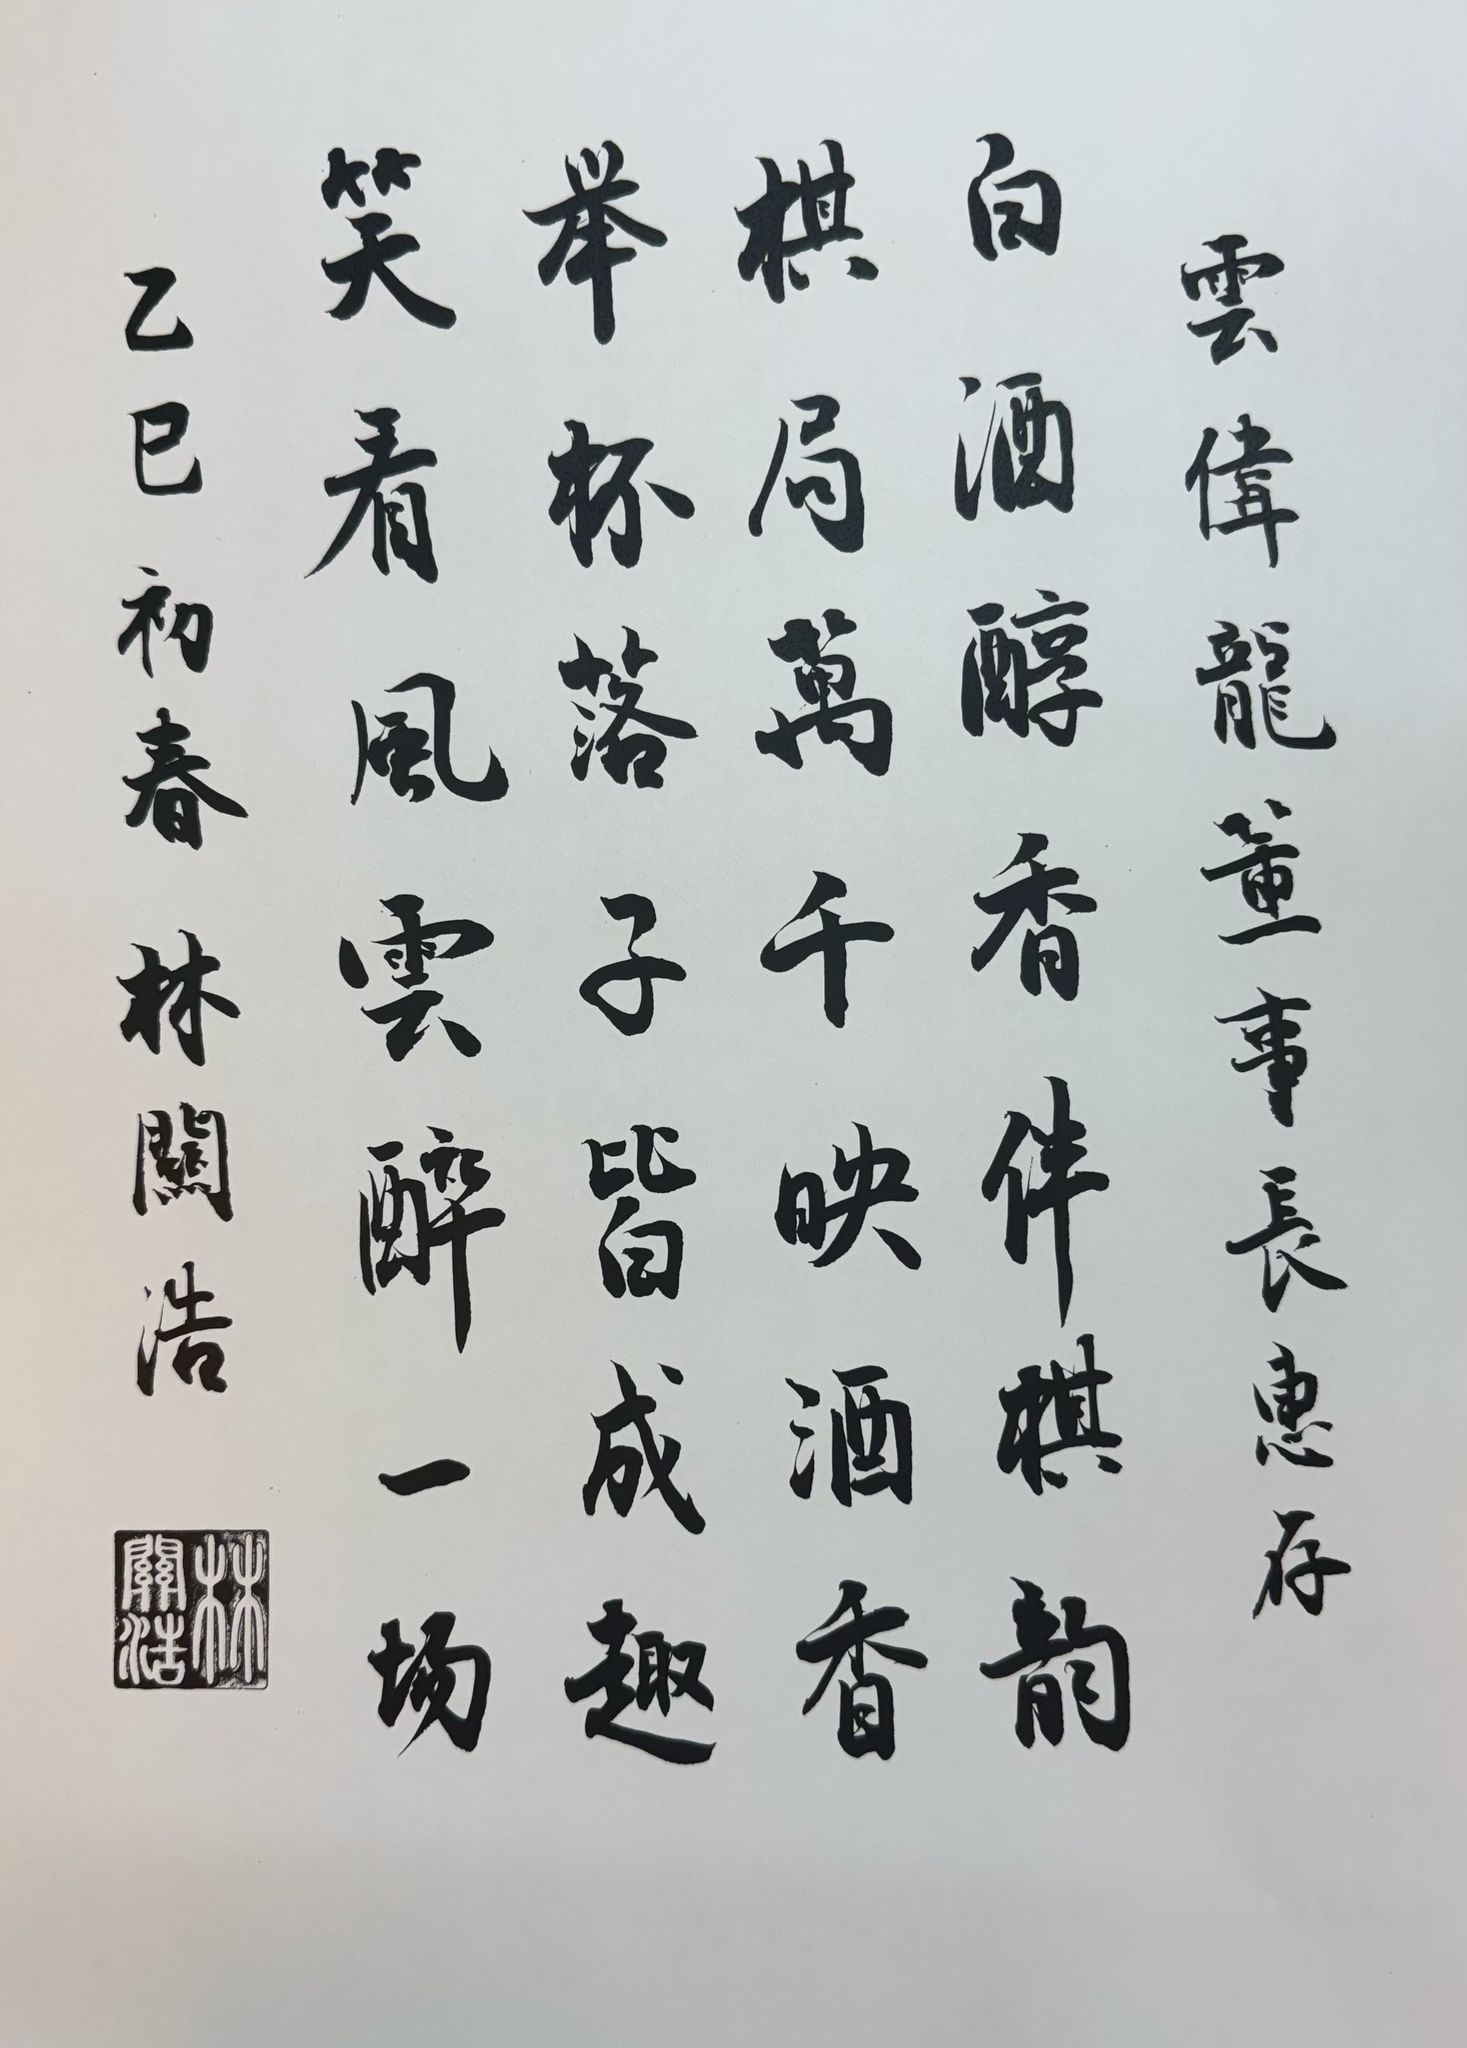 雲偉龍董事長惠存
白酒醇香伴棋韵
棋局萬千映酒香
举杯落子皆成趣
笑看風雲醉一场
乙巳初春 林關浩
林關浩